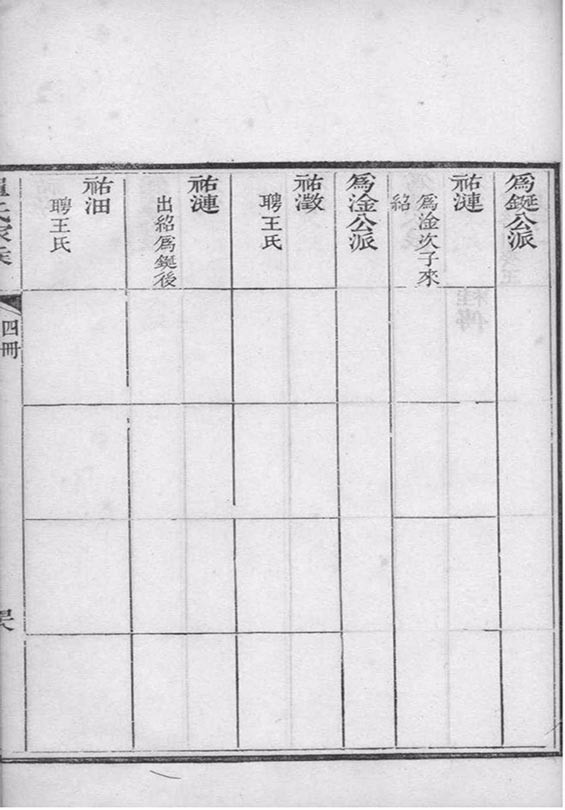 為鋋公派
祐漣
為淦次子來
紹
為淦公派
祐漖
聘王氏
祐漣
出紹為鋋後
祐沺
聘王氏
四冊